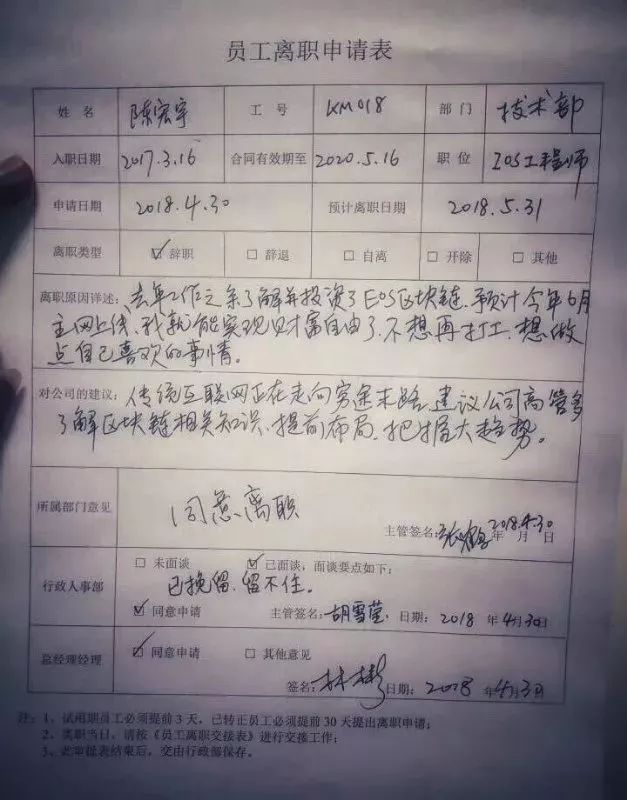 员工离职申请表
姓 名 陈宏宇 工 号 KM018 部 门 技术部
入职日期 2017.3.16 合同有效期至 2020.5.16 职 位 IOS工程师
申请日期 2018.4.30 预计离职日期 2018.5.31
离职类型 ☑ 辞职 □ 辞退 □ 自离 □ 开除 □ 其他
离职原因详述：去年工作之余了解并投资了EOS区块链，预计今年6月
主网上线，我就能实现财富自由了，不想再打工，想做
点自己喜欢的事情。
对公司的建议：传统互联网正在走向穷途末路，建议公司高管多
了解区块链相关知识，提前布局，把握大趋势。
所属部门意见 同意离职
主管签名： 2018.4.30 年 月 日
行政人事部 □ 未面谈 ☑ 已面谈，面谈要点如下：
已挽留，留不住。
☑ 同意申请 主管签名：胡雪莹 日期：2018 年4月30日
总经理经理 ☑ 同意申请 □ 其他意见
签名：林彬 日期：2018 年4月3日
注：1、试用期员工必须提前3天，已转正员工必须提前30天提出离职申请；
2、离职当日，请按《员工离职交接表》进行交接工作；
3、此审批表结束后，交由行政部保存。